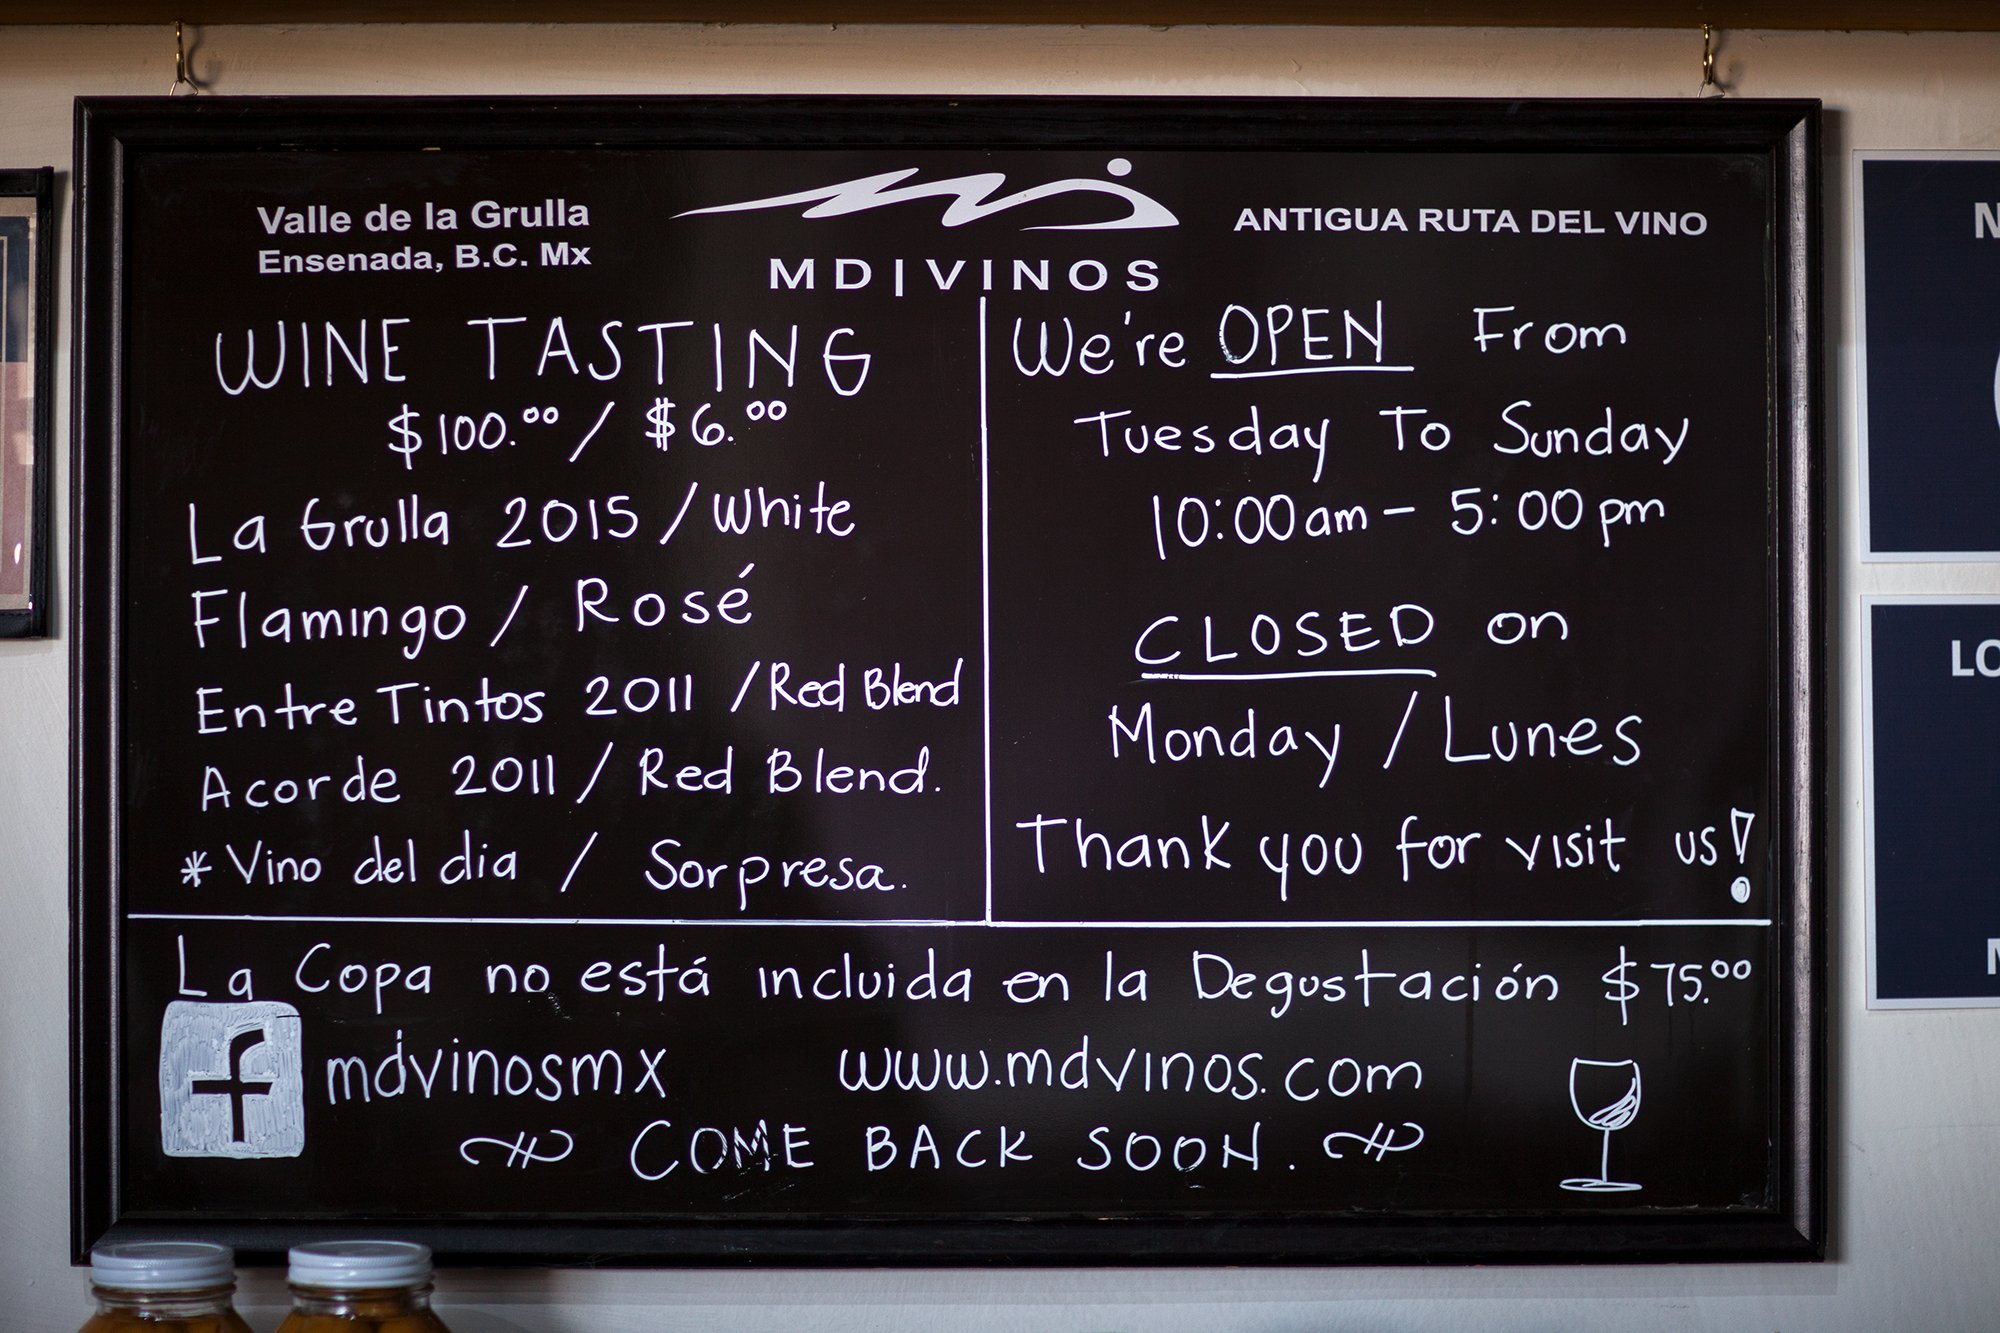 Valle de la Grulla
Ensenada, B.C. Mx
MD|VINOS
ANTIGUA RUTA DEL VINO
WINE TASTING
$100.00 / $6.00
La Grulla 2015 / White
Flamingo / Rosé
Entre Tintos 2011 / Red Blend
Acorde 2011 / Red Blend.
* Vino del dia / Sorpresa.
We're OPEN From
Tuesday To Sunday
10:00am - 5:00pm
CLOSED on
Monday / Lunes
Thank you for visit us!
La Copa no está incluida en la Degustación $75.00
f mdvinosmx www.mdvinos.com
COME BACK SOON.